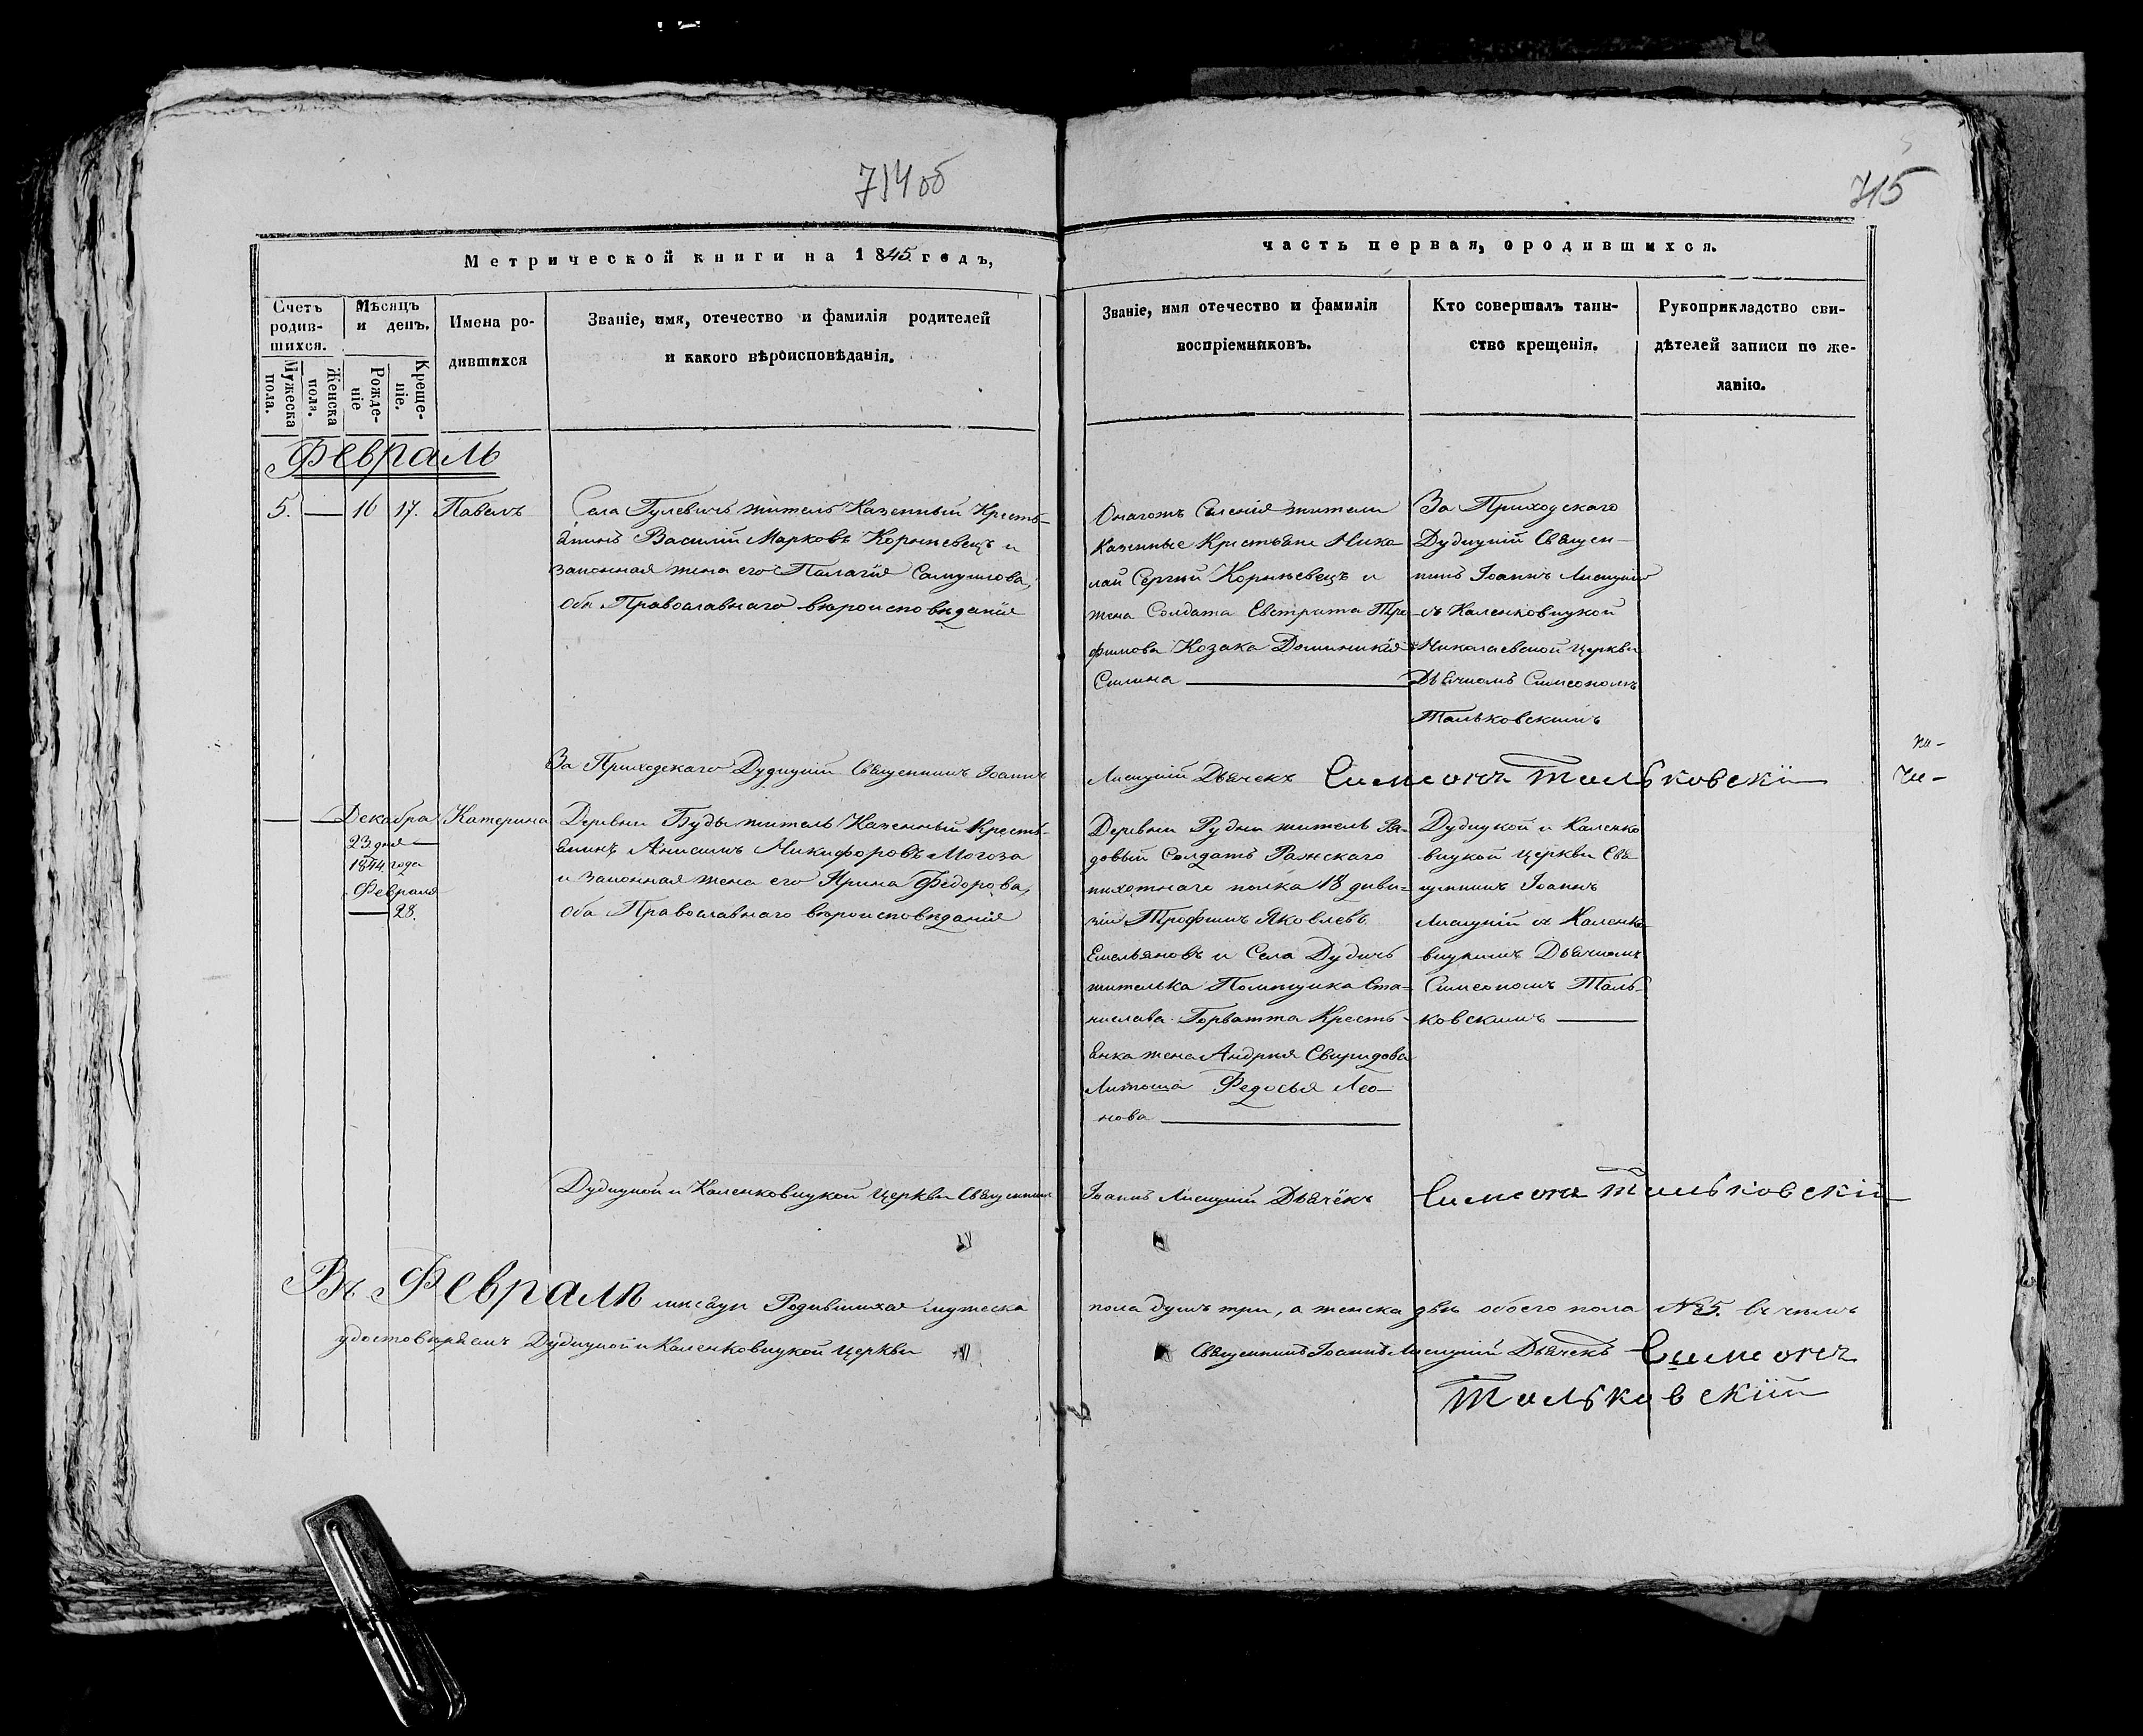 714об
715
Метрической книги на 1845 годъ,
часть первая, о родившихся.
Счетъ родив-шихся.
Мужеска пола.
Женска пола.
Мѣсяцъ и день.
Рожде-ніе
Креще-ніе.
Имена ро-
дившихся
Званіе, имя, отечество и фамилія родителей
и какого вѣроисповѣданія.
Званіе, имя отечество и фамилія
воспріемниковъ.
Кто совершалъ таин-
ство крещенія.
Рукоприкладство сви-
дѣтелей записи по же-
ланію.
Февраль
5. — 16 17. Павелъ
Села Гулевичъ житель Казенный Кресть-
янинъ Василій Марковъ Корнѣевецъ и
законная жена его Палагія Самуилова,
оба Православнаго вѣроисповѣданія
Онагожъ Селенія жители
Казенные Крестьяне Нико-
лай Сергѣй Корнѣевецъ и
жена Солдата Евстрата Тро-
фимова Козака Доминикія
Силина
За Приходскаго
Дудицкій Священ-
никъ Іоаннъ Лисицкій
съ Каленковицкой
Николаевской Церкви
Дьячкомъ Симеономъ
Тальковскимъ
За Приходскаго Дудицкій Священникъ Іоаннъ Лисицкій Дьячекъ Симеонъ Тальковскій
— — Декабря
23 дня
1844 года
Февраля
— 28.
Катерина
Деревни Буды житель Казенный Кресть-
янинъ Анисимъ Никифоровъ Могоза
и законная жена его Ярина Федорова,
оба Православнаго вѣроисповѣданія
Деревни Рудни житель Ря-
довый Солдатъ Ряжскаго
пѣхотнаго полка 18 диви-
зіи Трофимъ Яковлевъ
Емельяновъ и Села Дудичъ
жителька Помѣщика Ста-
нислава Горватта Кресть-
янка жена Андрея Свиридова
Литоша Федосья Лео-
нова
Дудицкой и Каленко-
вицкой Церкви Свя-
щенникъ Іоаннъ
Лисицкій съ Каленко-
вицкимъ Дьячкомъ
Симеономъ Таль-
ковскимъ
Дудицкой и Каленковицкой Церкви Священникъ Іоаннъ Лисицкій Дьячёкъ Симеонъ Тальковскій
Въ Февралѣ мѣсяцѣ Родившихся мужеска пола душъ три, а женска двѣ обоего пола №5. въ чемъ
удостовѣряемъ Дудицкой и Каленковицкой Церкви Священникъ Іоаннъ Лисицкій Дьячекъ Симеонъ
Тальковскій